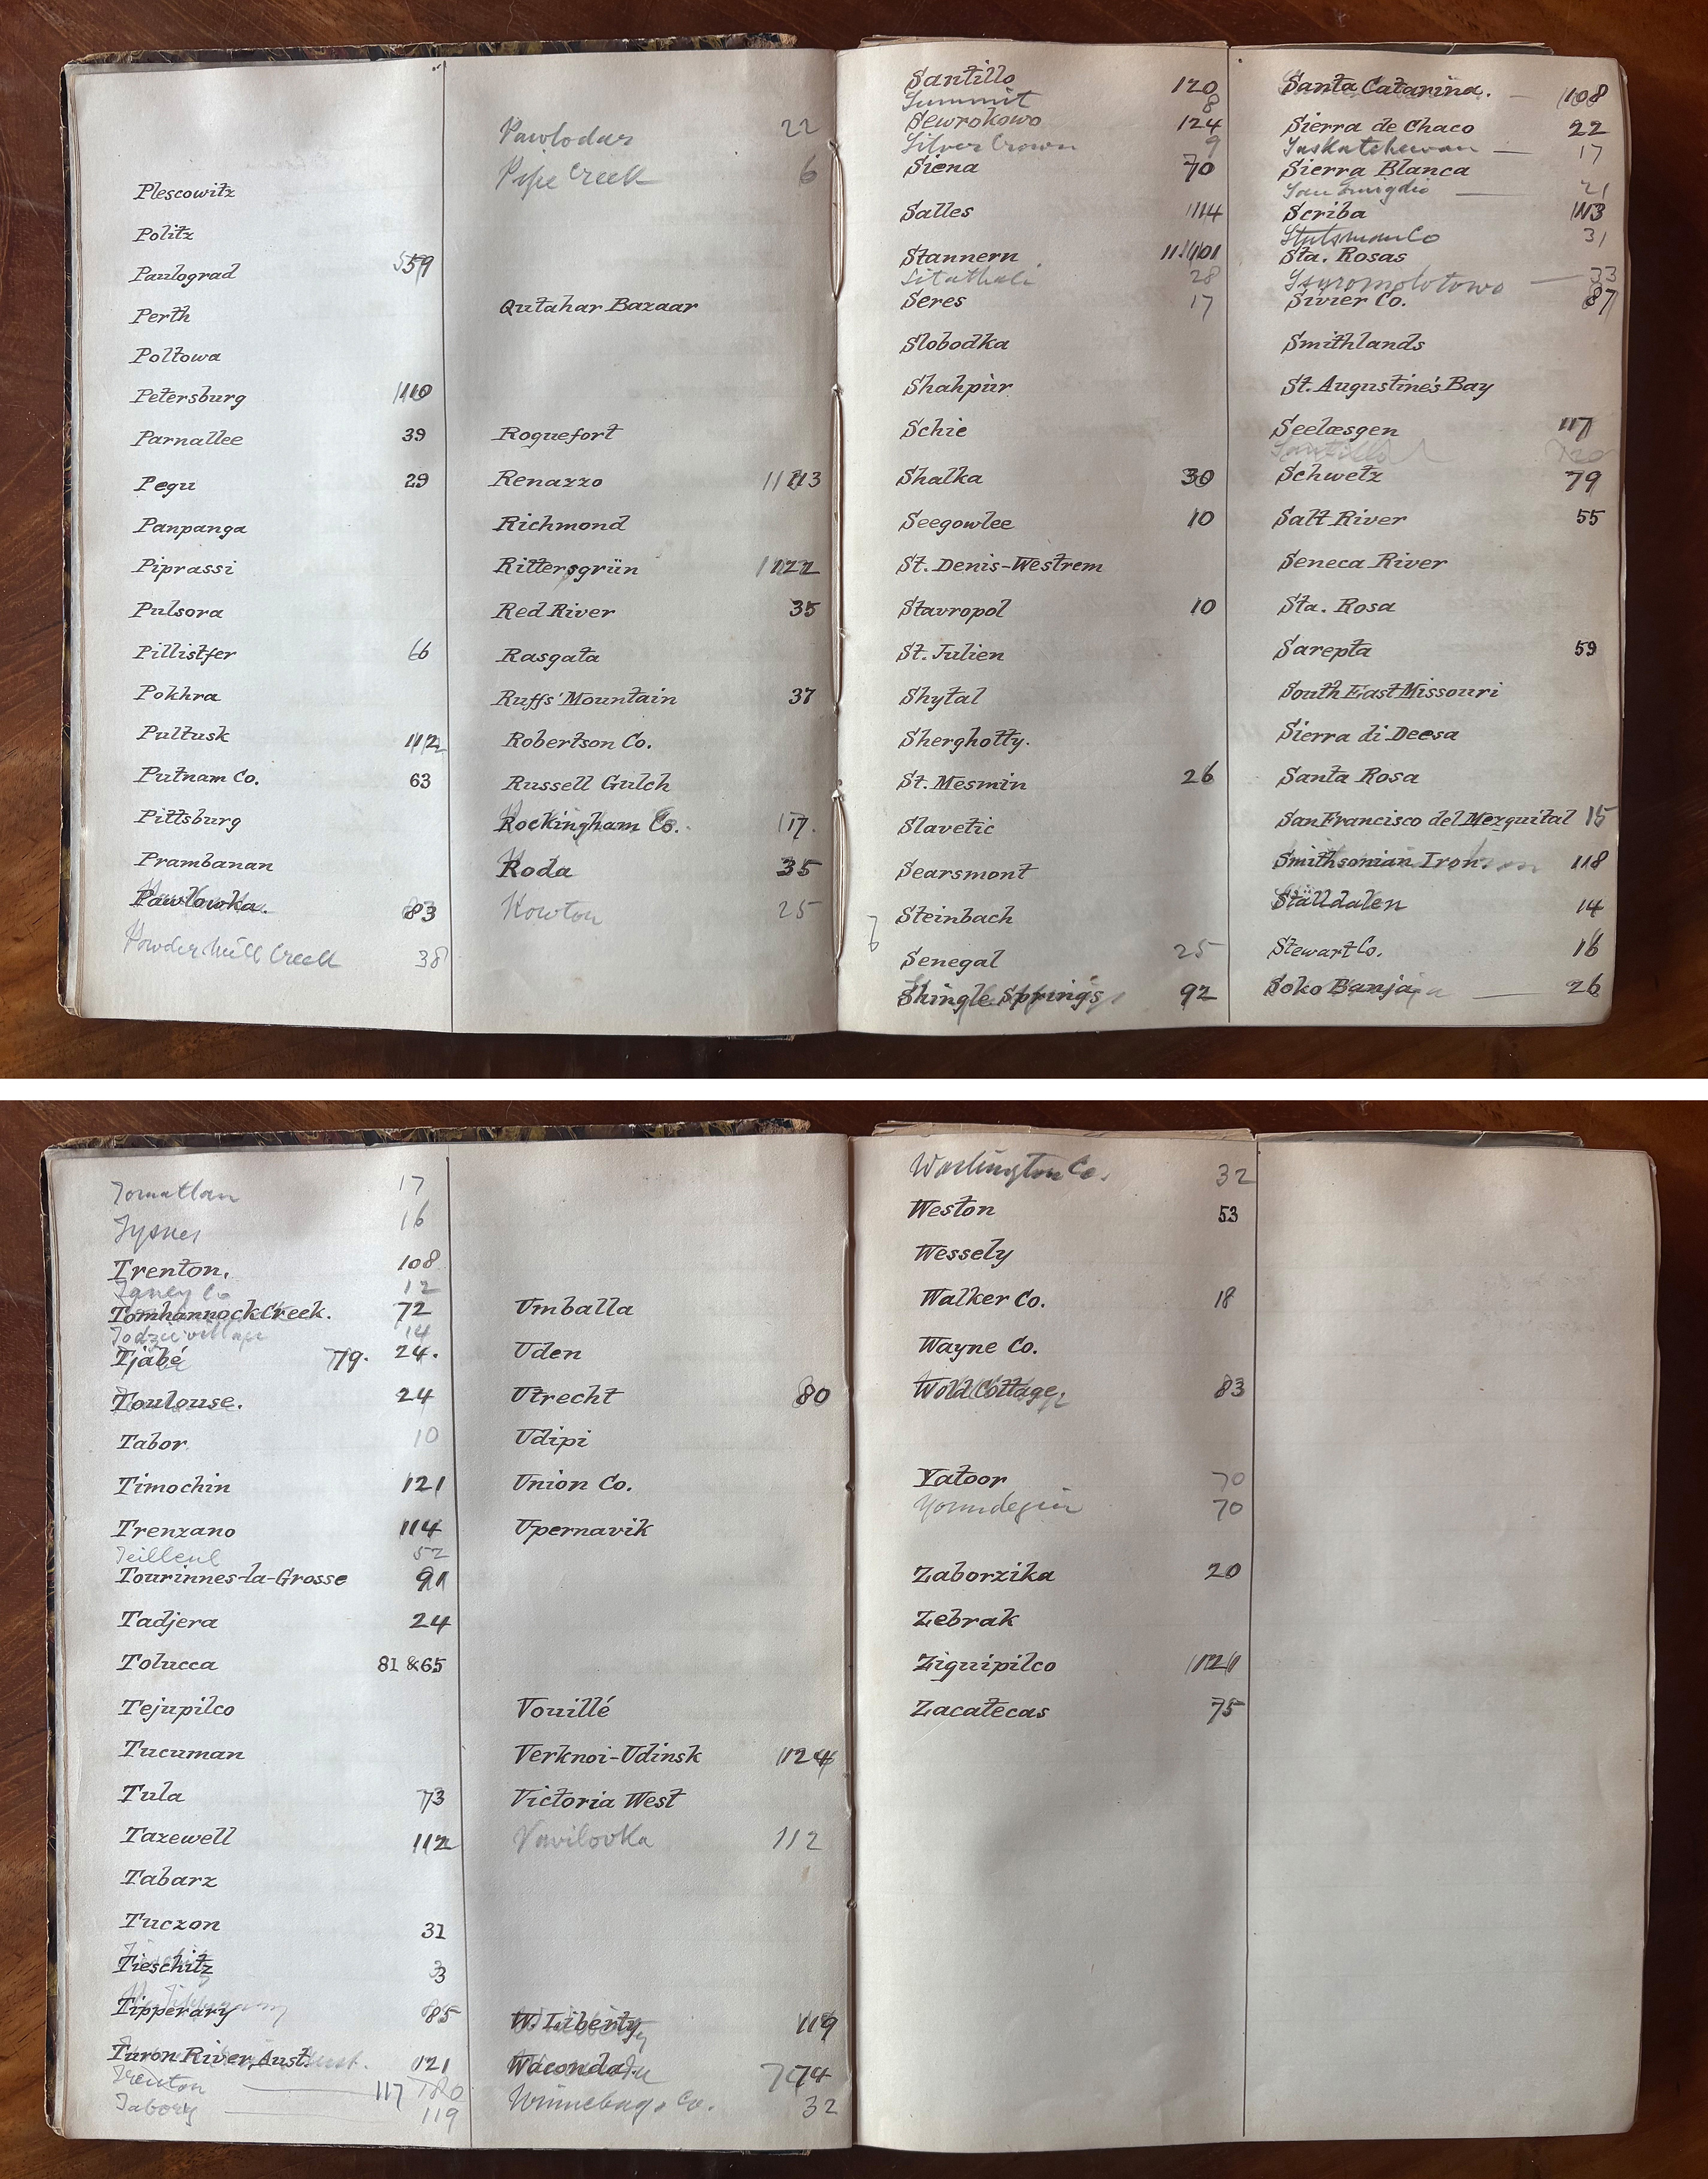 Plescowitz
Politz
Paulograd 59
Perth
Poltowa
Petersburg 110
Parnallee 39
Pegu 29
Panpanga
Piprassi
Pulsora
Pillistfer 66
Pokhra
Pultusk 112
Putnam Co. 63
Pittsburg
Prambanan
Pawlowka. 83
Powder Mill Creek 38
Pawlodar 22
Pipe Creek 6
Qutahar Bazaar
Roquefort
Renazzo 113
Richmond
Rittersgrün 122
Red River 35
Rasgata
Ruffs' Mountain 37
Robertson Co.
Russell Gulch
Rockingham Co. 17.
Roda 35
Rowton 25
Santillo 120
Summit 8
Sewrokowo 124
Silver Crown 9
Siena 70
Salles 114
Stannern 101
Sitathali 28
Seres 17
Slobodka
Shahpur
Schie
Shalka 30
Seegowlee 10
St. Denis-Westrem
Stavropol 10
St. Julien
Shytal
Sherghotty.
St. Mesmin 26
Slavetic
Searsmont
Steinbach
Senegal 25
Shingle Springs 92
Santa Catarina. 108
Sierra de Chaco 22
Saskatchewan — 17
Sierra Blanca
San Emigdio — 21
Scriba 113
Stutsman Co 31
Sta. Rosas
— 33
Sivier Co. 87
Smithlands
St. Augustine's Bay
Seelæsgen 117
Santillo 120
Schwetz 79
Salt River 55
Seneca River
Sta. Rosa
Sarepta 59
South East Missouri
Sierra di Deesa
Santa Rosa
San Francisco del Mezquital 15
Smithsonian Iron. 118
Ställdalen 14
Stewart Co. 16
Soko Banja — 26
Tomatlan 17
Tysnes 16
Trenton. 108
Taney Co 12
Tomhannock Creek. 72
Jodzie village 14
Tjabé 79. 24.
Toulouse. 24
Tabor 10
Timochin 121
Trenzano 114
Teilleul 52
Tourinnes-la-Grosse 91
Tadjera 24
Tolucca 81 & 65
Tejupilco
Tucuman
Tula 73
Tazewell 112
Tabarz
Tuczon 31
Tieschitz 3
Tipperary 85
Turon River, Aust. 121
Trenton — 117 120
Tabory — 119
Umballa
Uden
Utrecht 80
Udipi
Union Co.
Upernavik
Vouillé
Verknoi-Udinsk 124
Victoria West
Vavilovka 112
W. Liberty 119
Waconda 74
Winnebago Co. 32
Washington Co. 32
Weston 53
Wessely
Walker Co. 18
Wayne Co.
Wold Cottage, 83
Yatoor 70
Youndegin 70
Zaborzika 20
Zebrak
Ziquipilco 121
Zacatecas 75